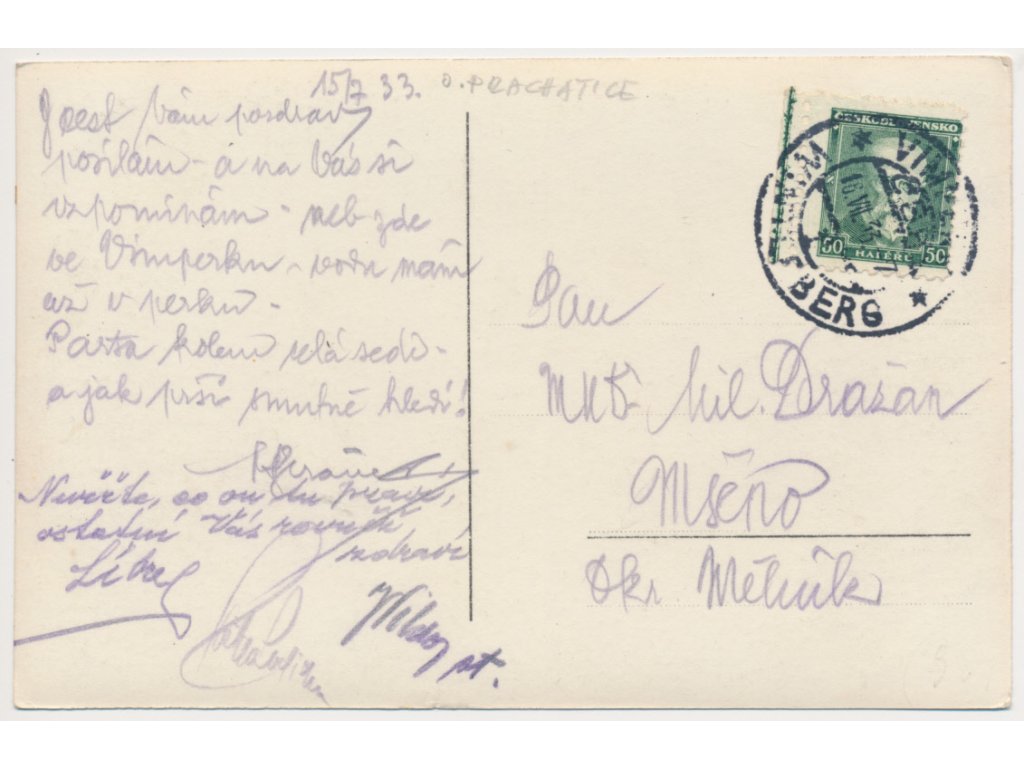 15/7 33. O. PRACHATICE
Vám pozdrav
posílám - a na Vás si
vzpomínám - neb zde
ve Vimperku - vodu mám
až v perku -
Parta kolem celá sedí -
a jak prší smutně hledí!
Nevěřte, co on tu
ostatní Vás rovněž
zdraví
st.
ČESKOSLOVENSKO
50 HALÉŘŮ 50
BERG
Pan
Mil. Dražan
Mšeno
Okr. Mělník